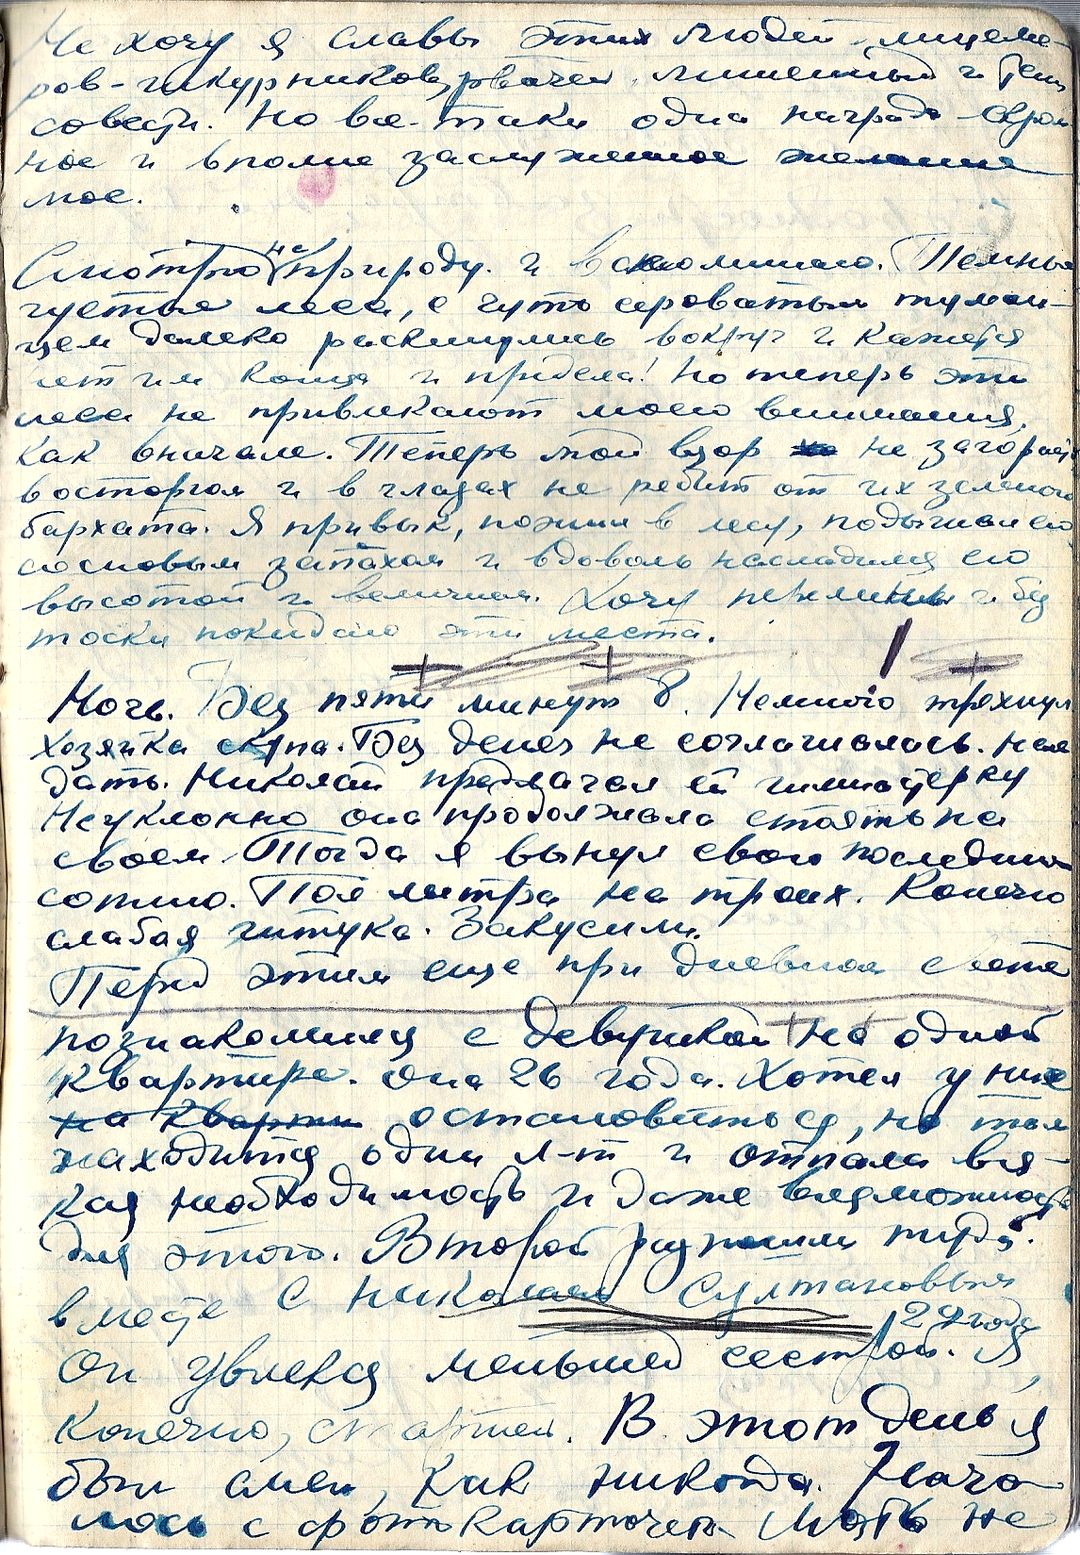 Не хочу я славы этих людей, лицеме-
ров-шкурников, рвачей, лишенных и тени
совести. Но все-таки одна награда - огром-
ное и вполне заслуженное желание
мое.
Смотрю на природу и вспоминаю. Темные
густые леса, с чуть сероватым туман-
цем далеко раскинулись вокруг и кажется
нет им конца и предела! Но теперь эти
леса не привлекают моего внимания,
как вначале. Теперь мой взор не загорается
восторгом и в глазах не рябит от их зеленого
бархата. Я привык, пожил в лесу, подышал его
сосновым запахом и вдоволь насладился его
высотой и величием. Хочу перемены и без
тоски покидаю эти места.
Ночь. Без пяти минут 8. Немного трехнул
Хозяйка скупа. Без денег не соглашалась нам
дать. Николай предлагал ей гимнастерку
Неуклонно она продолжала стоять на
своем. Тогда я вынул свою последнюю
сотню. Пол литра на троих. Конечно
слабая штука. Закусили.
Перед этим еще при дневном свете
познакомился с девушкой на одной
квартире. Она 26 года. Хотел у них
на кварти остановиться, но там
находится один л-т и отпала вся-
кая необходимость и даже возможность
для этого. Второй раз пошли туда
вместе с Николаем Султановым
29 года
Он увлекся меньшей сестрой. Я,
конечно, старшей. В этот день я
был смел, как никогда. Нача
лось с фотокарточек. Мать не